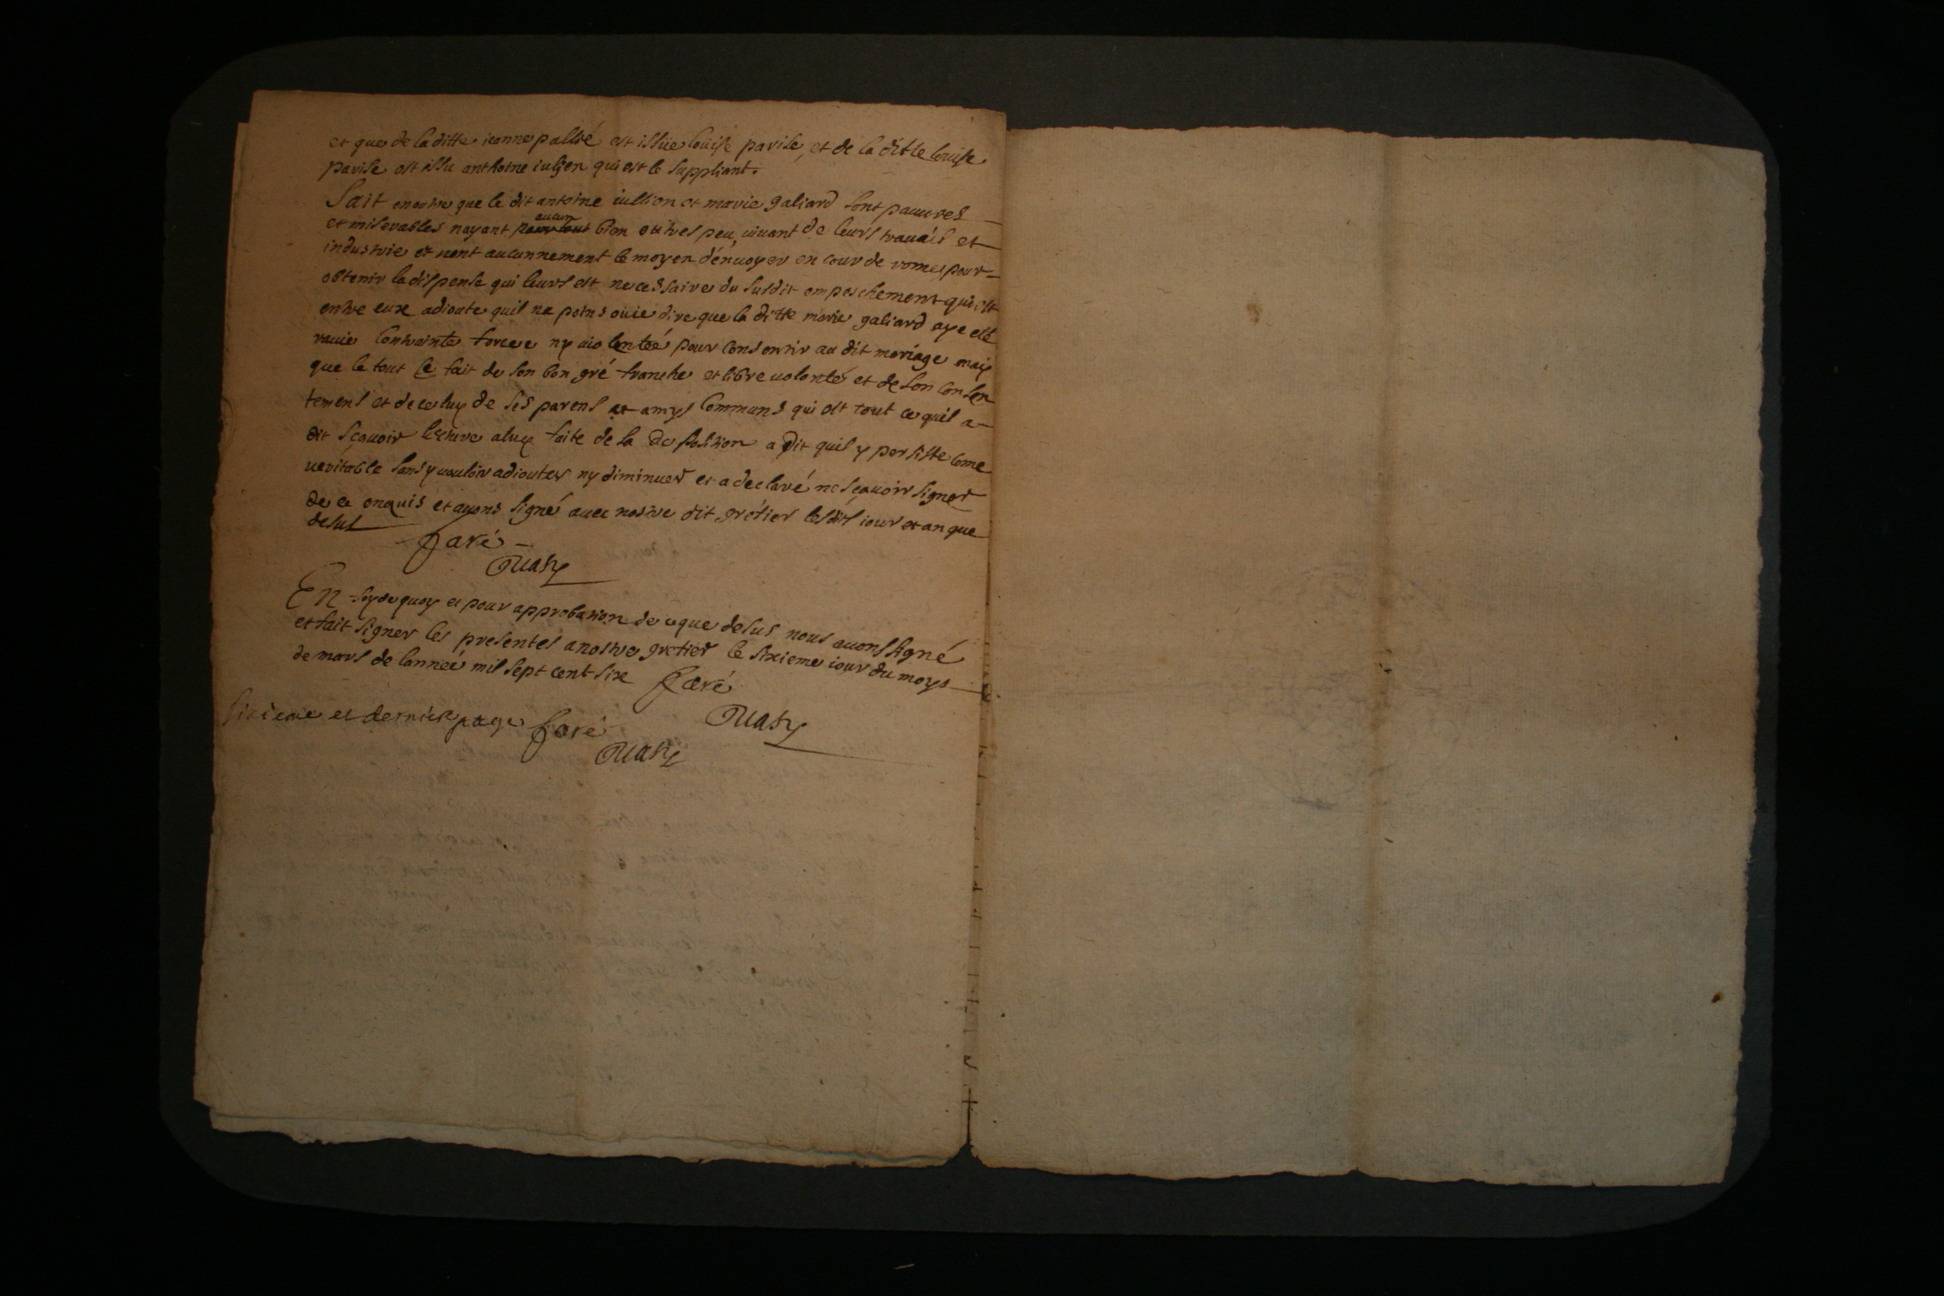 et que de la ditte ieanne pallié est issue louise parise, et de la ditte louise
parise est issu anthoine iullien qui est le suppliant.
Sait en outre que le dit antoine iullien et marie galiard sont pauvres
et miserables nayant aucun bien ou tres peu, vivant de leurs travail et
industrie et nont aucunnement le moyen denvoyer en cour de rome pour
obtenir la dispense qui leurs est necessaire du susdit empeschement qui est
entre eux adioute quil na point ouie dire que la ditte marie galiard aye esté
ravie contrainte forcee ny violentée pour consentir au dit mariage mais
que le tout ce fait de son bon gré franche et libre volonté et de son consen
tement et de celuy de ses parens et amys communs qui est tout ce quil a
dit sçavoir lecture a luy faite de sa deposition a dit quil y persiste come
veritable sans y vouloir adiouter ny diminuer et a declaré ne sçavoir signer
de ce enquis et avons signé avec nostre dit gréfier lesdits iour et an que
desus
faré
Ruasy
En foy de quoy et pour approbation de ce que desus nous avons signé
et fait signer les presentes a nostre grefier le sixieme iour du moys
de mars de lanneé mil sept cent six faré
Ruasy
sixieme et derniere page faré
Ruasy